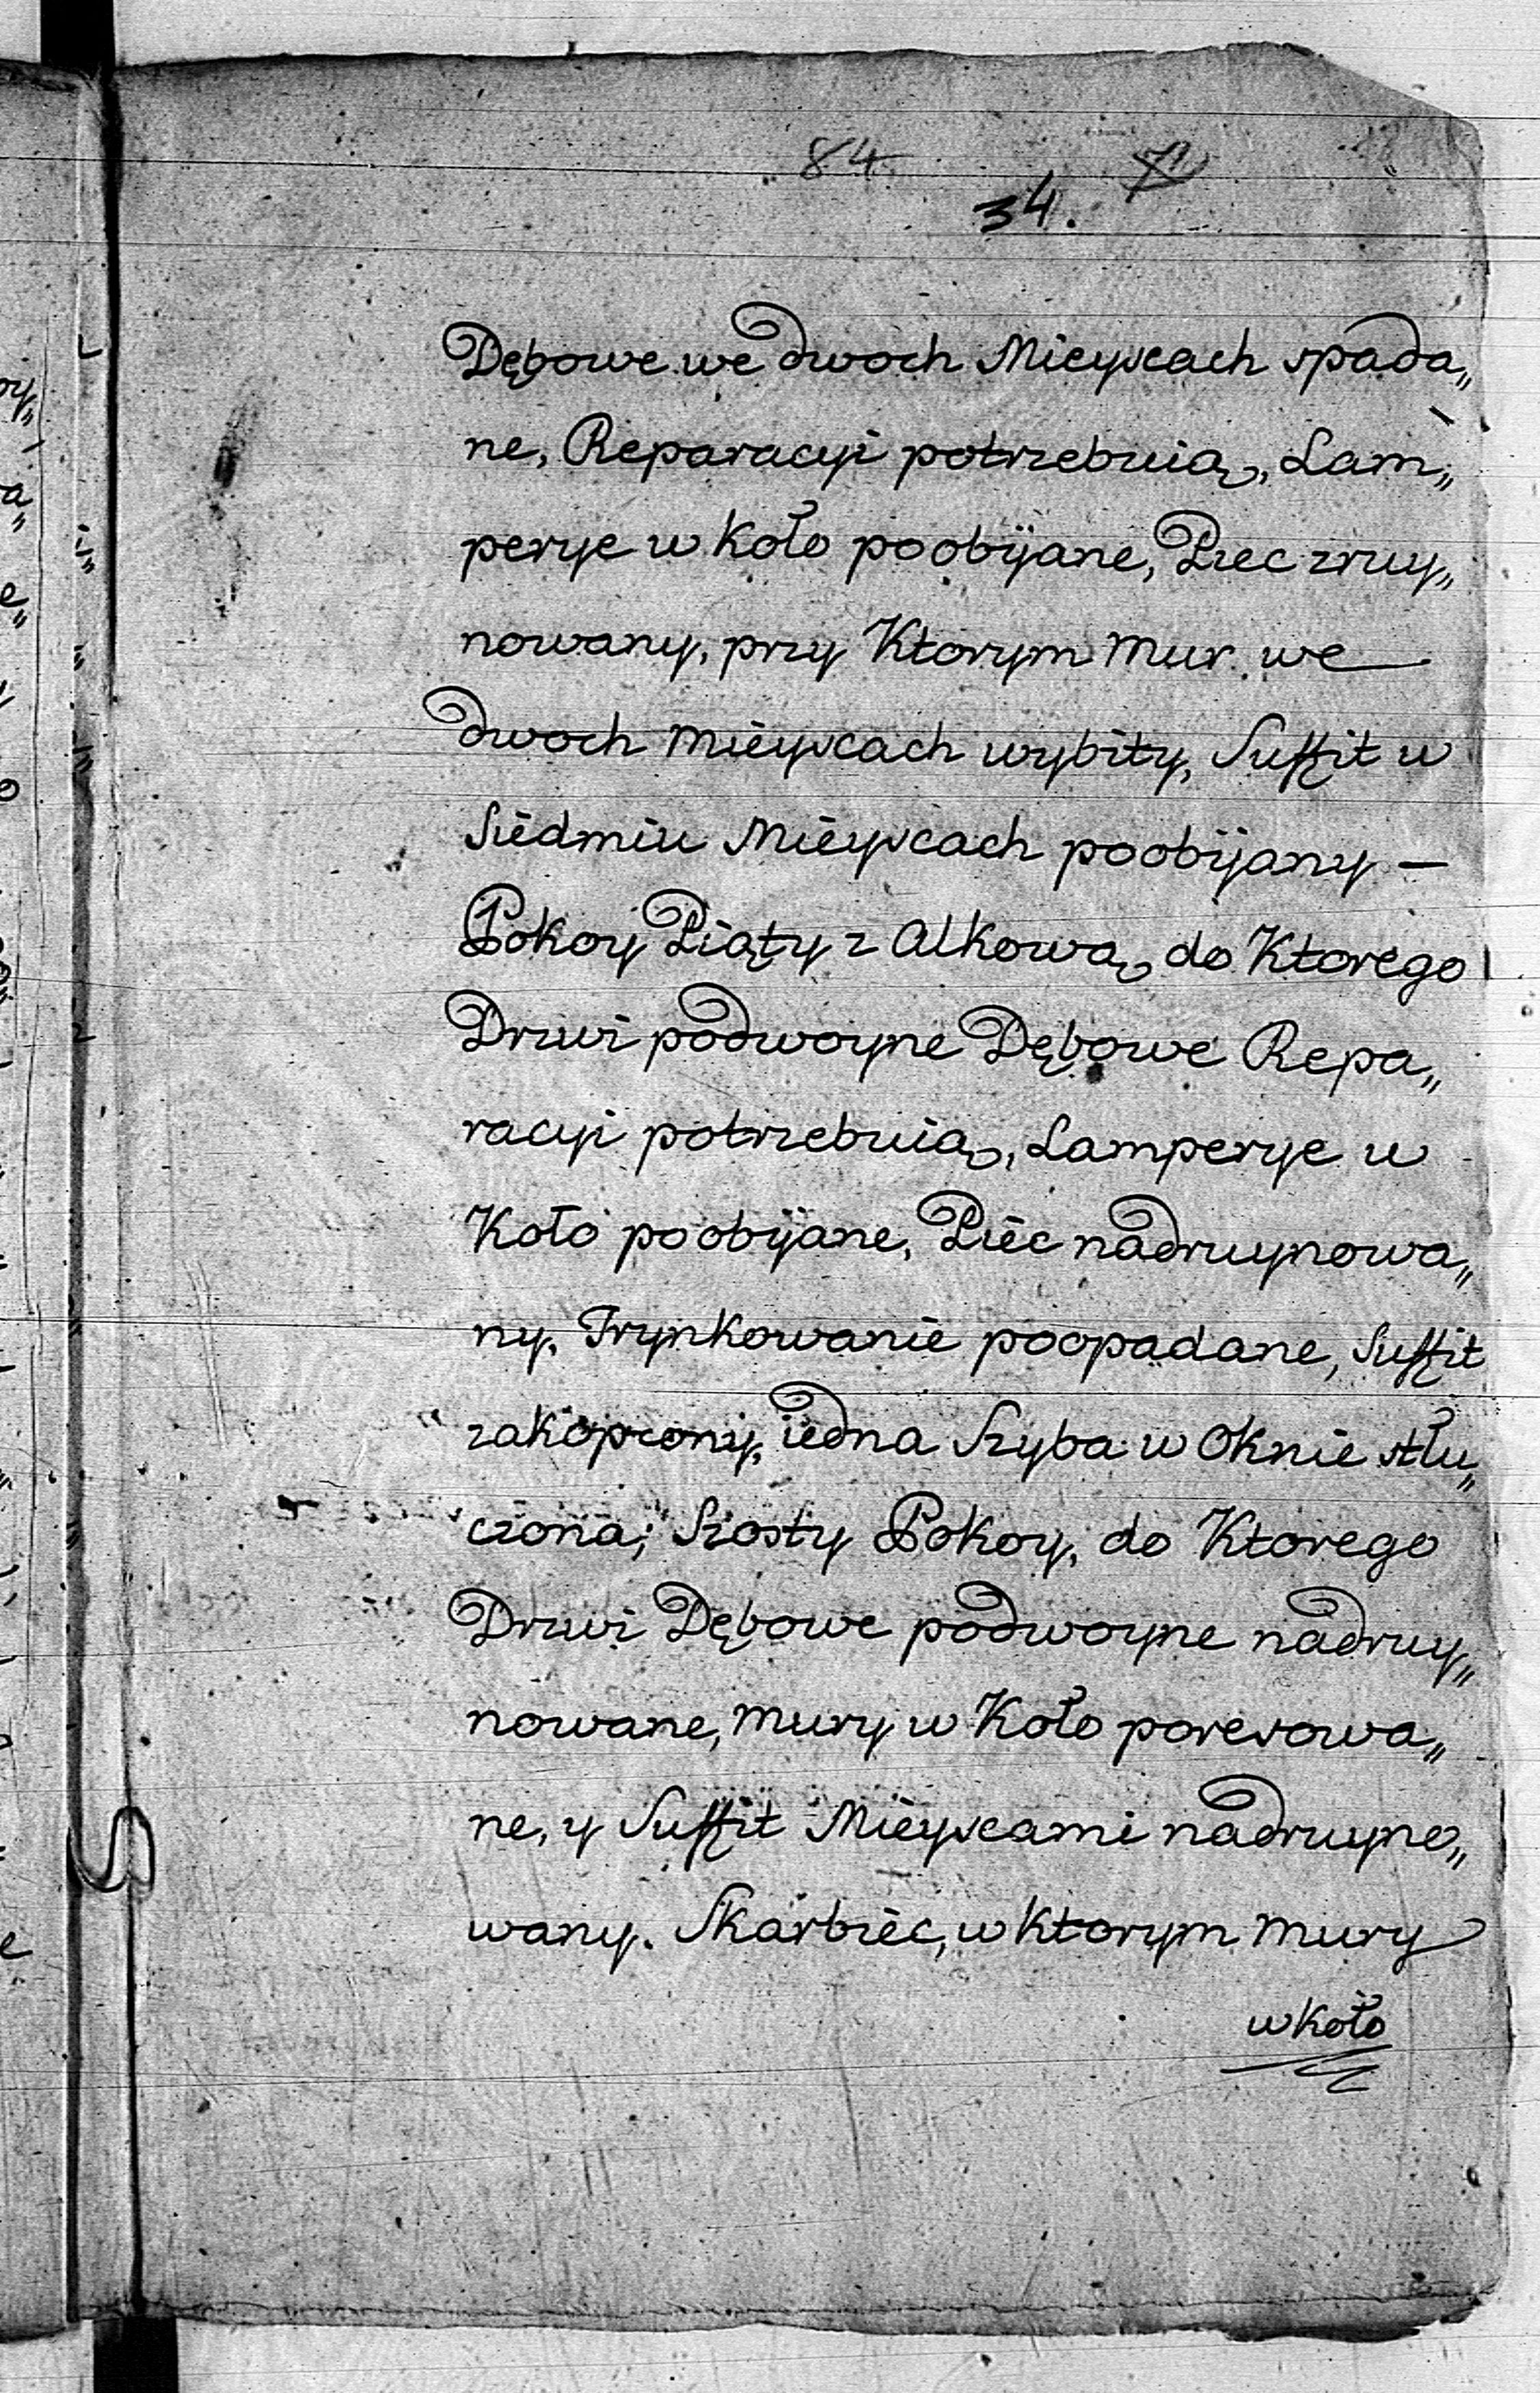 84.
34.
Dębowe we dwoch Mieyscach spada„
ne, Reparacyi potrzebuią, Lam„
perye w Koło poobijane, Piec zruy„
nowany, przy Ktorym Mur we
dwoch Mieyscach wybity, Suffit w
Siedmiu Mieyscach poobijany —
Pokoy Piąty z Alkową, do Ktorego
Drzwi podwoyne Dębowe Repa„
racyi potrzebuią, Lamperye w
Koło poobijane, Piec nadruynowa„
ny, Trynkowanie poopadane, Suffit
zakopcony, iedna Szyba w Oknie stłu„
czona; Szosty Pokoy, do Ktorego
Drzwi Dębowe podwoyne nadruy„
nowane, Mury w Koło porysowa„
ne, y Suffit Mieyscami nadruyno„
wany. Skarbiec, w Ktorym Mury
w Koło